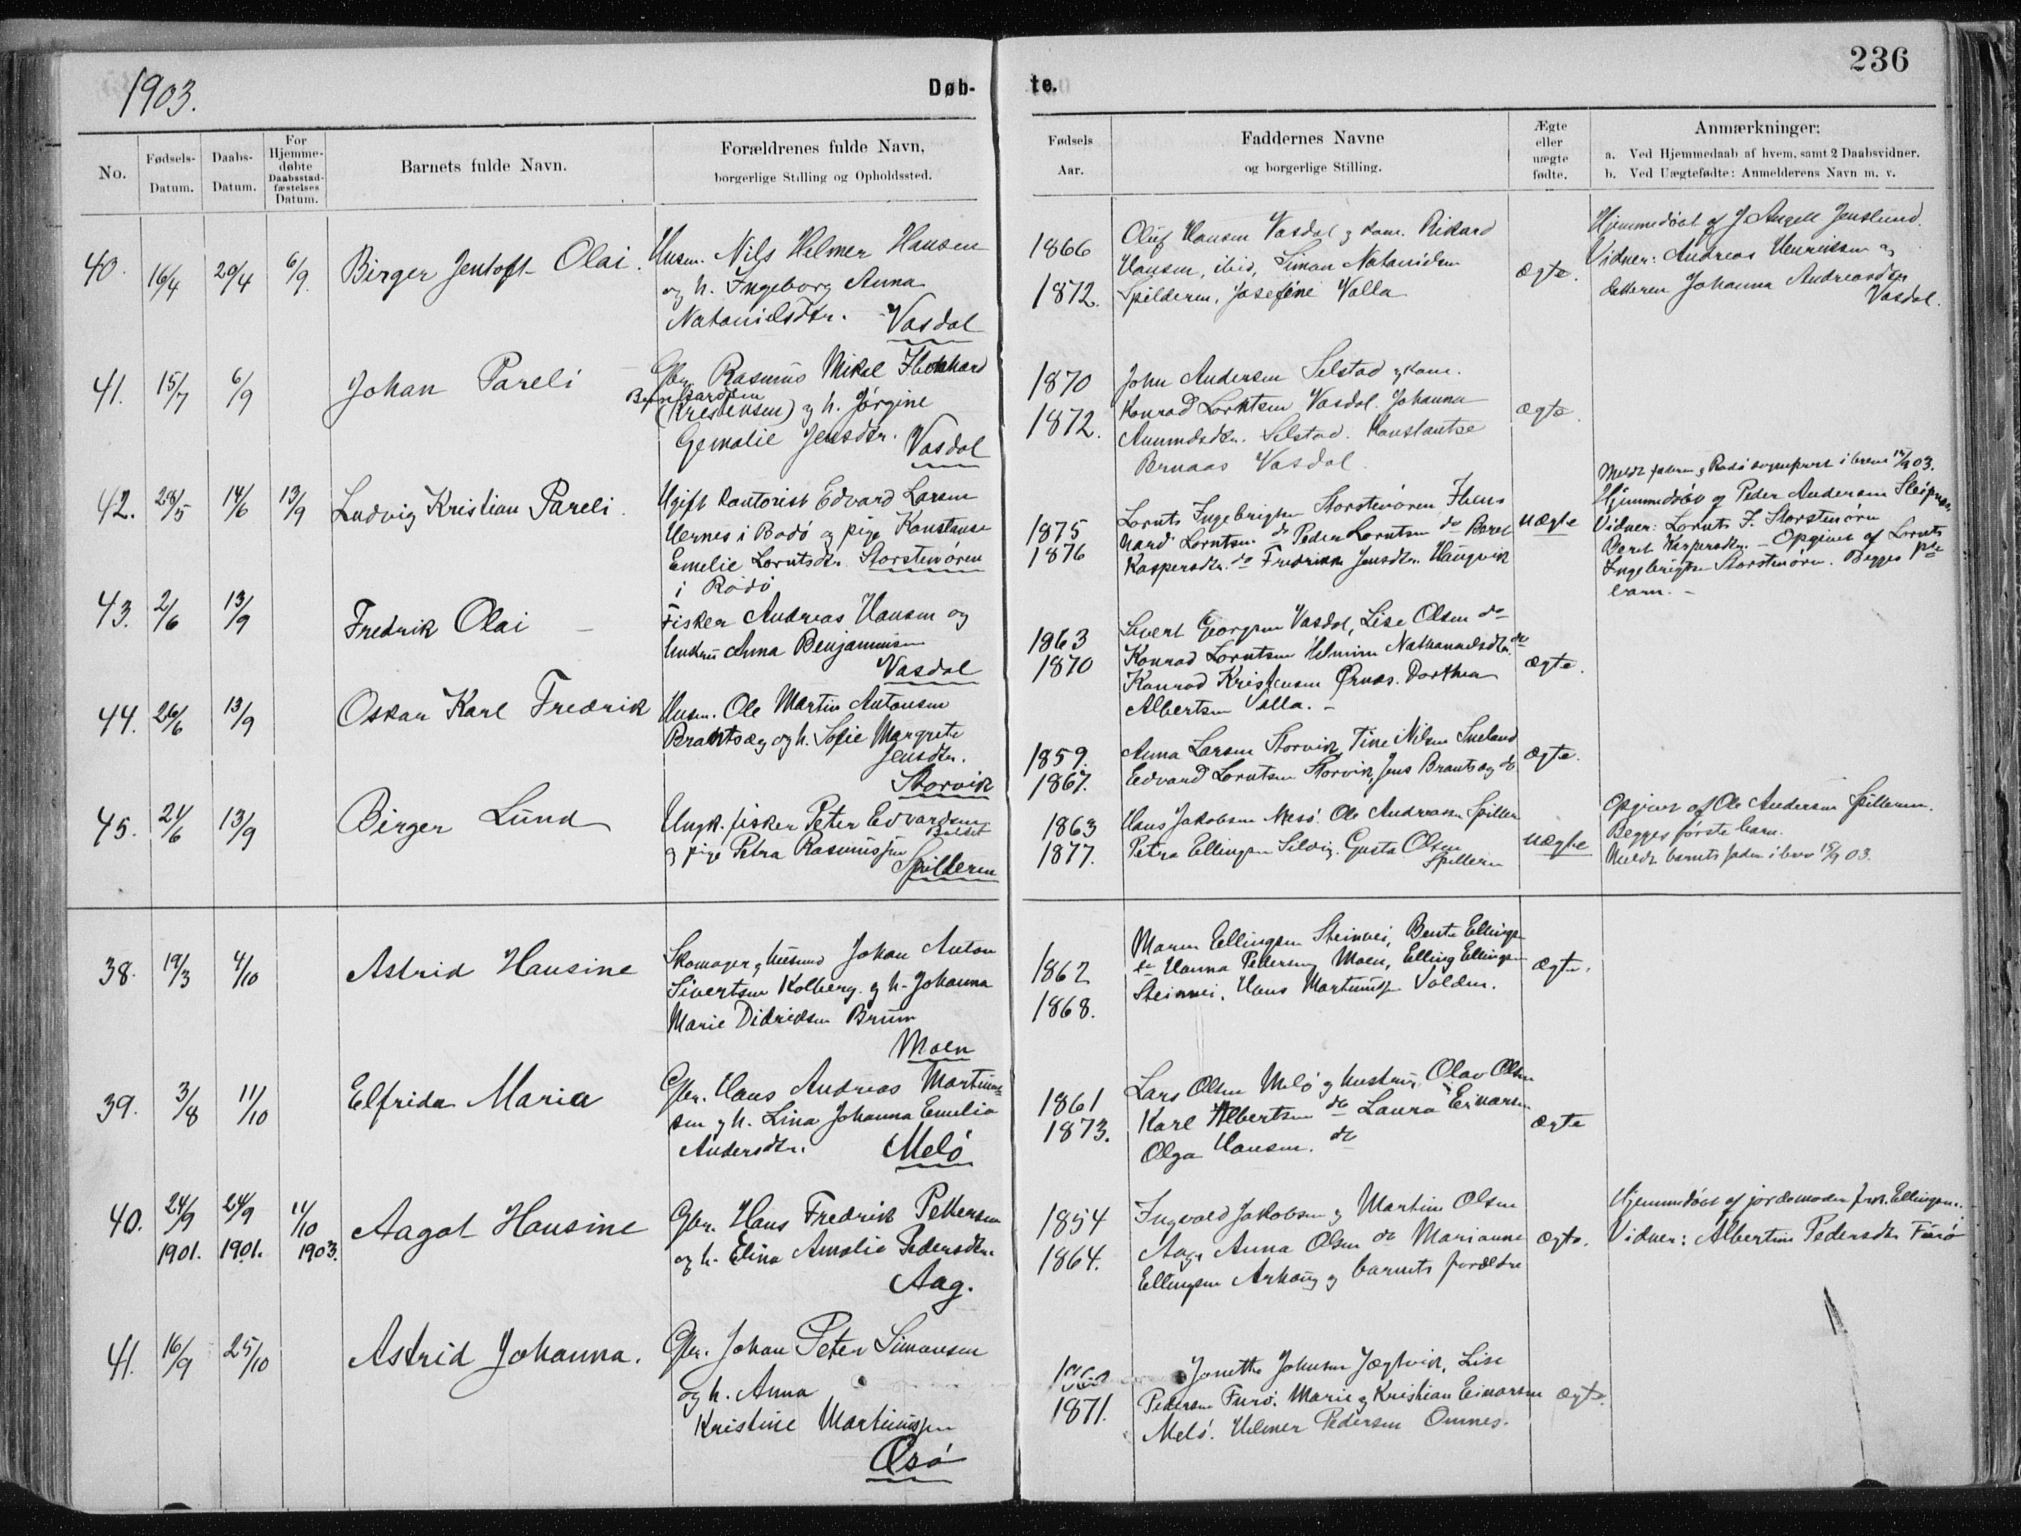 1903.
Døb-
te.
236
No.
Fødsels-
Datum.
Daabs-
Datum.
For
Hjemme-
døbte
Daabsstad-
fæstelses
Datum.
Barnets fulde Navn.
Forældrenes fulde Navn,
borgerlige Stilling og Opholdssted.
Fødsels
Aar.
Faddernes Navne
og borgerlige Stilling.
Ægte
eller
uægte
fødte.
Anmærkninger:
a. Ved Hjemmedaab af hvem, samt 2 Daabsvidner.
b. Ved Uægtefødte: Anmelderens Navn m. v.
40. 16/4 20/4 6/9. Birger Jentoft Olai.
Husm. Nils Helmer Hansen
og h. Ingeborg Anna
Natanielsdtr. Vasdal
1866
1872.
Oluf Hansen Vasdal og kone. Rikard
Hansen, ibid, Simon Natanielsen
Spilderen, Josefine Valla
ægte.
Hjemmedøbt af J. Angell Jenslund.
Vidner: Andreas Henriksen og
Johanna Andreasdtr.
Vasdal.
41. 15/7 6/9 Johan Pareli
Gbr. Rasmus Mikal
(Kristensen) og h. Jørgine
Gemalie Jensdtr. Vasdal
1870
1872.
John Andersen Selstad og kone.
Konrad Lorntsen Vasdal. Johanna
Amundsdtr. Selstad. Konstantse
Vasdal.
ægte.
42. 28/5 14/6 13/9 Ludvig Kristian Pareli.
Ugift kantorist Edvard Larsen
Hernes i Bodö og pige Konstanse
Emelie Lorntsdtr. Storstenören
i Rödö
1875
1876
Lornts Ingebrigtsen Storstenören,
Lorntsen do Peder Lorntsen do Beret
Kaspersdtr. do Fredrikke Jensdtr. Haugvik
uægte
Meldt faderen g Rødø sogneprest i brev 14/9 03.
Hjemmedøbt af Peder Andersen
Vidner: Lornts I. Storstenörn
Beret Kaspersdtr. – Opgivet af Lornts
Ingebrigtsen Storstenörn. Begges 1ste
barn. –
43. 2/6 13/9 Fredrik Olai –
Fisker Andreas Hansen og
hustru Anna Benjaminsen
Vasdal
1863
1870
Sivert Georgsen Vasdal, Lise Olsen do
Konrad Lorntsen Helmine Natanaelsdtr. do
Konrad Kristensen Ørnes. Dorthea
Albertsen Valla. –
ægte.
44. 26/6 13/9 Oskar Karl Fredrik
Husm. Ole Martin Antonsen
Brantsæg og h. Sofie Margrete
Jensdtr.
Storvik
1859.
1867.
Anna Larsen Storvik, Tine Nilsen
Edvard Lorntsen Storvik, Jens Brantsæg do
ægte.
45. 21/6 13/9 Birger Lund
Ungk. fisker Peter Edvardsen
og pige Petra Rasmussen
Spilderen
1863
1877.
Hans Jakobsen Mesö. Ole Andreasen Spilder
Petra Ellingsen Selvig. Gusta Olsen
Spilleren
uægte
Opgivet af Ole Andersen Spilleren.
Begges første barn.
Meldt barnets fader i brev 15/9 03.
38. 19/3 4/10 Astrid Hansine
Skomager g husmd Johan Anton
Sivertsen Kolberg. g h. Johanna
Marie Didriksen Bruun
Moen
1862
1868.
Maren Ellingsen Steinvei, Bente Ellingsen
do Hanna Pedersen Moen, Elling Ellingsen
Steinvei, Hans Martinussen Valden.
ægte.
39. 3/8 11/10 Elfrida Maria
Gbr. Hans Andreas Martinus-
sen g h. Lina Johanna Emelia
Andersdtr. Melö
1861
1873.
Lars Olsen Melö g hustru, Olav Olsen
Karl Albertsen do Laura Einarsen
Olga Hansen. do
ægte
40. 24/9 24/9 11/10
1901. 1901. 1903. Aagot Hansine
Gbr. Hans Fredrik Pettersen
og h. Elina Amalie Pedersdtr.
Aag.
1854
1864.
Ingvald Jakobsen g Martin Olsen
Aag. Anna Olsen do Marianne
Ellingsen Arhaug g barnets forældre
ægte.
Hjemmedøbt af jordemoder frk. Ellingsen.
Vidner: Albertine Pedersdtr Furö
41. 16/9 25/10 Astrid Johanna.
Gbr. Johan Peter Simonsen
og h. Anna
Kristine Martinussen
Æsö
1871.
Jonette Johnsen Jægtvik, Lise
Pedersen Furö. Marie g Kristian Einarsen
Melö. Helmer Pedersen Omnes.
ægte.